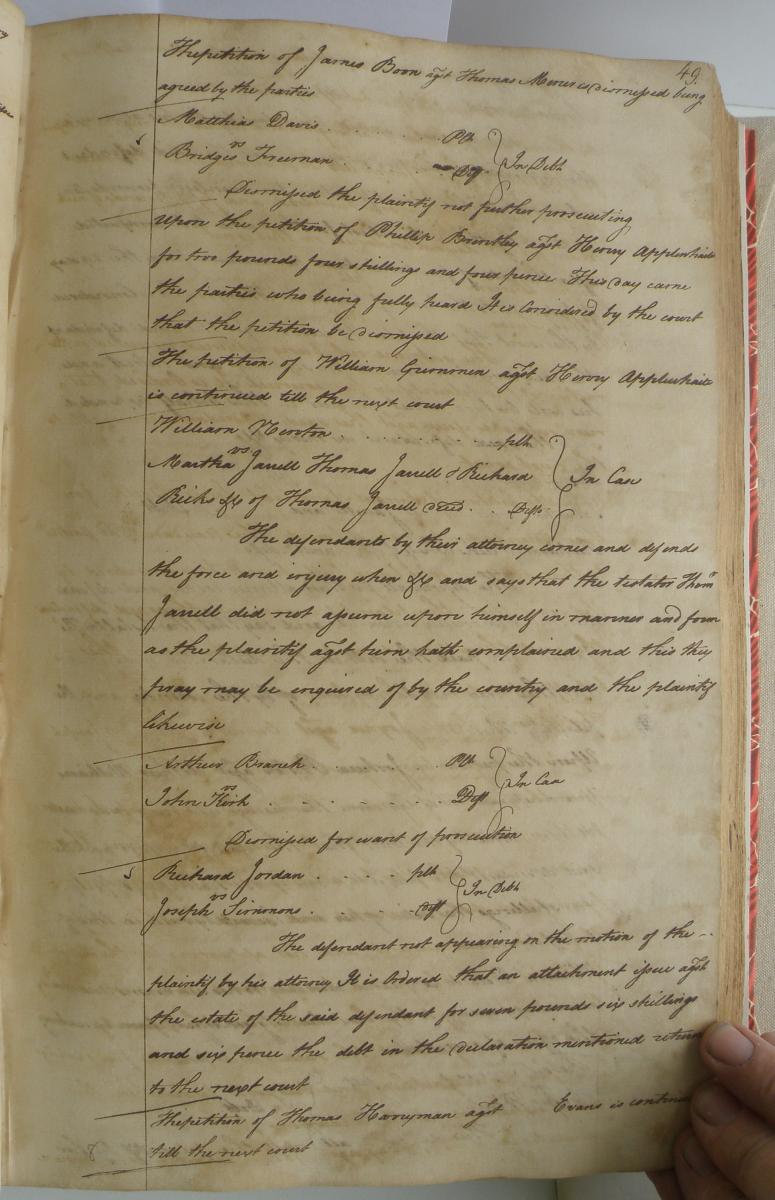 49.
The petition of James Boon agst Thomas is dismissed being
agreed by the parties
Matthias Davis . . . . . . Plt
vs
Bridges Freeman . . . . . Dft } In Debt
Dismissed the plaintif not further prosecuting
Upon the petition of Phillip Brantley agst Henry Applewhaite
for two pounds four shillings and four pence This day came
the parties who being fully heard It is Considered by the court
that the petition be dismissed
The petition of William agst Henry Applewhaite
is continued till the next court
William Newton . . . . . . plt
vs
Martha Jarrell Thomas Jarrell & Richard } In Case
Ricks &c of Thomas Jarrell deced. . Defts
The defendants by their attorney comes and defends
the force and injury when &c and says that the testator Thoms
Jarrell did not assume upon himself in manner and form
as the plaintif agst him hath complained and this they
pray may be enquired of by the country and the plaintif
likewise
Arthur Branch . . . . . Plt
vs
John Kirk . . . . . Deft } In Case
Dismissed for want of prosecution
Richard Jordan . . . . plt
vs
Joseph Simmons . . . . . Deft } In Debt
The defendant not appearing on the motion of the
plaintif by his attorney It is Ordered that an attachment issue agst
the estate of the said defendant for seven pounds six shillings
and six pence the debt in the declaration mentioned return
to the next court
The petition of Thomas Harryman agst Evans is continu
till the next court
8